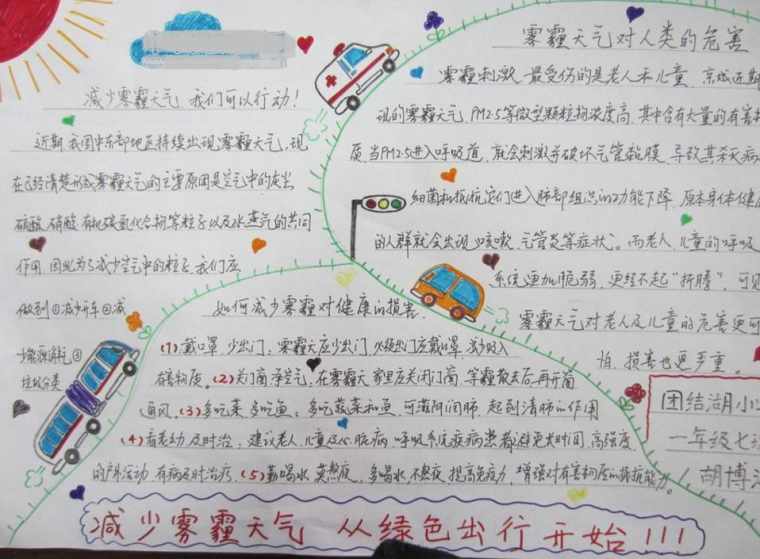 减少雾霾天气 我们可以行动!
近期,我国中东部地区持续出现雾霾天气,现
在已经清楚形成雾霾天气的主要原因是空气中的灰尘、
硫酸、硝酸、有机碳氢化合物等粒子以及水蒸气的共同
作用,因此为了减少空气中的粒子,我们应
做到①减少开车②减
少能源消耗③
垃圾分类
雾霾天气对人类的危害
雾霾刺激,最受伤的是老人和儿童,京城近期
现的雾霾天气,PM2.5等微型颗粒物浓度高,其中含有大量的有害
质,当PM2.5进入呼吸道,就会刺激并破坏气管黏膜,导致其杀灭病
细菌和抵抗它们进入肺部组织的功能下降,原本身体健
的人群就会出现咳嗽、气管炎等症状。而老人、儿童的呼吸
系统更加脆弱,更经不起"折腾",可见
雾霾天气对老人及儿童的危害更可
怕,损害也更严重。
如何减少雾霾对健康的损害
(1)戴口罩,少出门,雾霾天应少出门,必须出门应戴口罩,减少吸入
有害物质。(2)关门窗,净空气,在雾霾天,家里应关闭门窗,等霾散去后,再开窗
通风。(3)多吃菜,多吃鱼,多吃蔬菜和鱼,可滋阴润肺,起到清肺的作用
(4)看老幼,及时治,建议老人、儿童及心脏病、呼吸系统疾病患者避免长时间、高强度
的户外活动,有病及时治疗。(5)勤喝水,莫熬夜,多喝水,不熬夜,提高免疫力,增强对有害物质的抵抗能力。
团结湖小
一年级七
胡博
减少雾霾天气 从绿色出行开始!!!